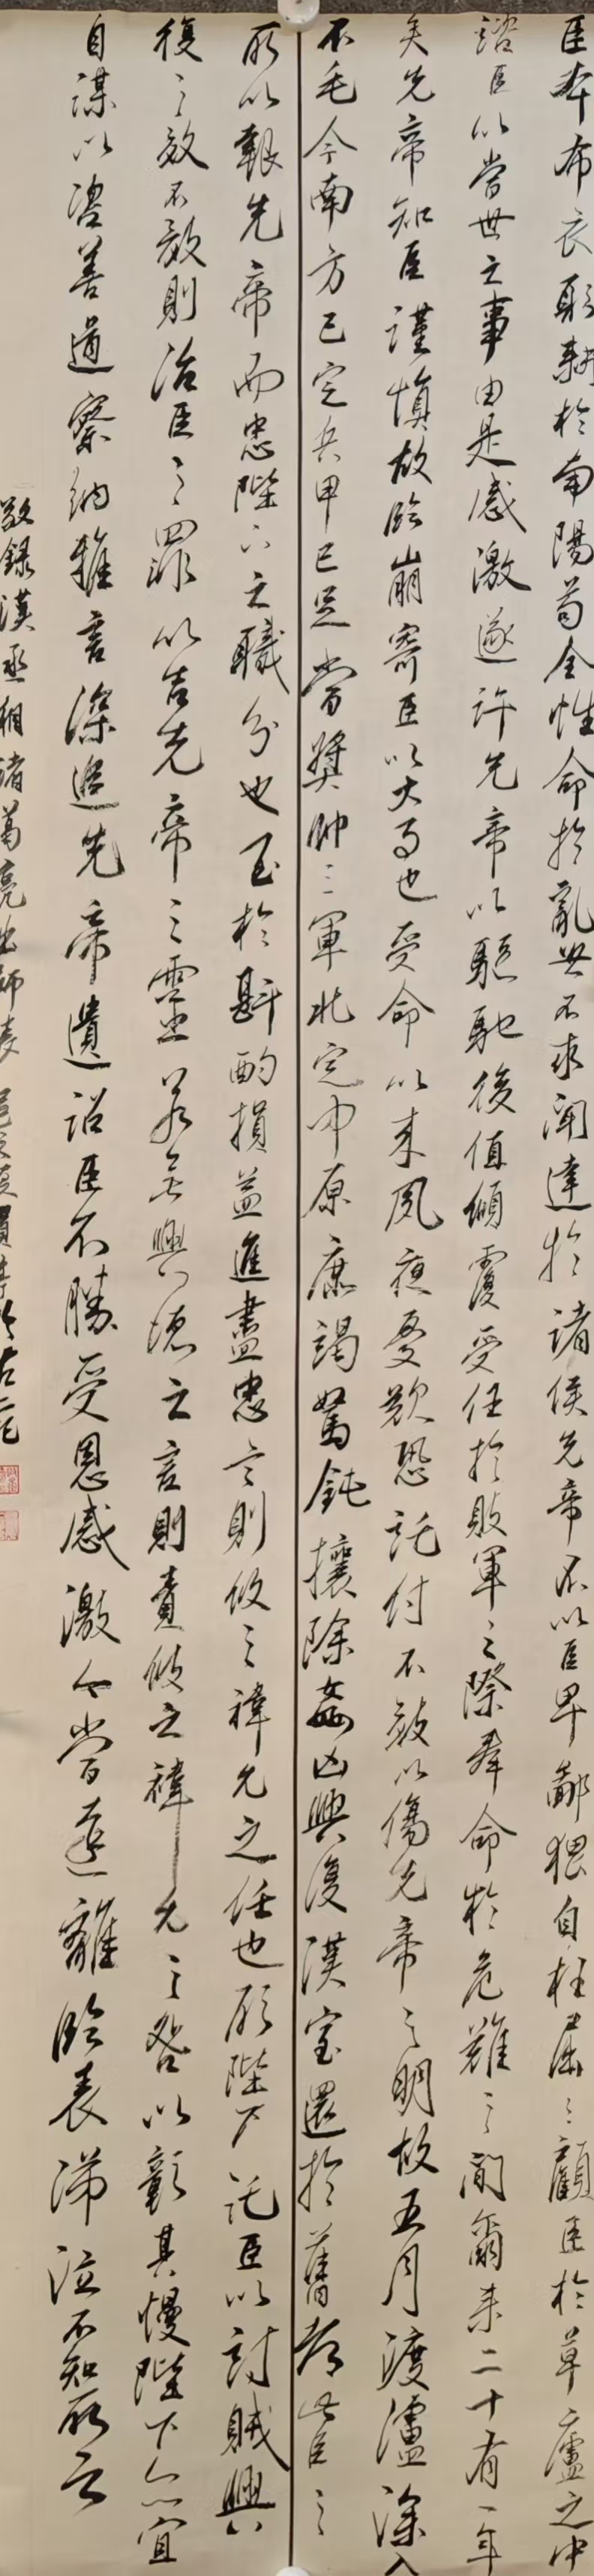 臣本布衣躬耕於南陽苟全性命於亂世不求聞達於諸侯先帝不以臣卑鄙猥自枉屈三顧臣於草廬之中
諮臣以當世之事由是感激遂許先帝以驅馳後值傾覆受任於敗軍之際奉命於危難之間爾來二十有一年
矣先帝知臣謹慎故臨崩寄臣以大事也受命以來夙夜憂歎恐託付不效以傷先帝之明故五月渡瀘深入
不毛今南方已定兵甲已足當獎帥三軍北定中原庶竭駑鈍攘除姦凶興復漢室還於舊都此臣之
所以報先帝而忠陛下之職分也至於斟酌損益進盡忠言則攸之禕允之任也願陛下託臣以討賊興
復之效不效則治臣之罪以告先帝之靈若無興德之言則責攸之禕允之咎以彰其慢陛下亦宜
自謀以諮善道察納雅言深追先帝遺詔臣不勝受恩感激今當遠離臨表涕泣不知所云
敬錄漢丞相諸葛亮出師表